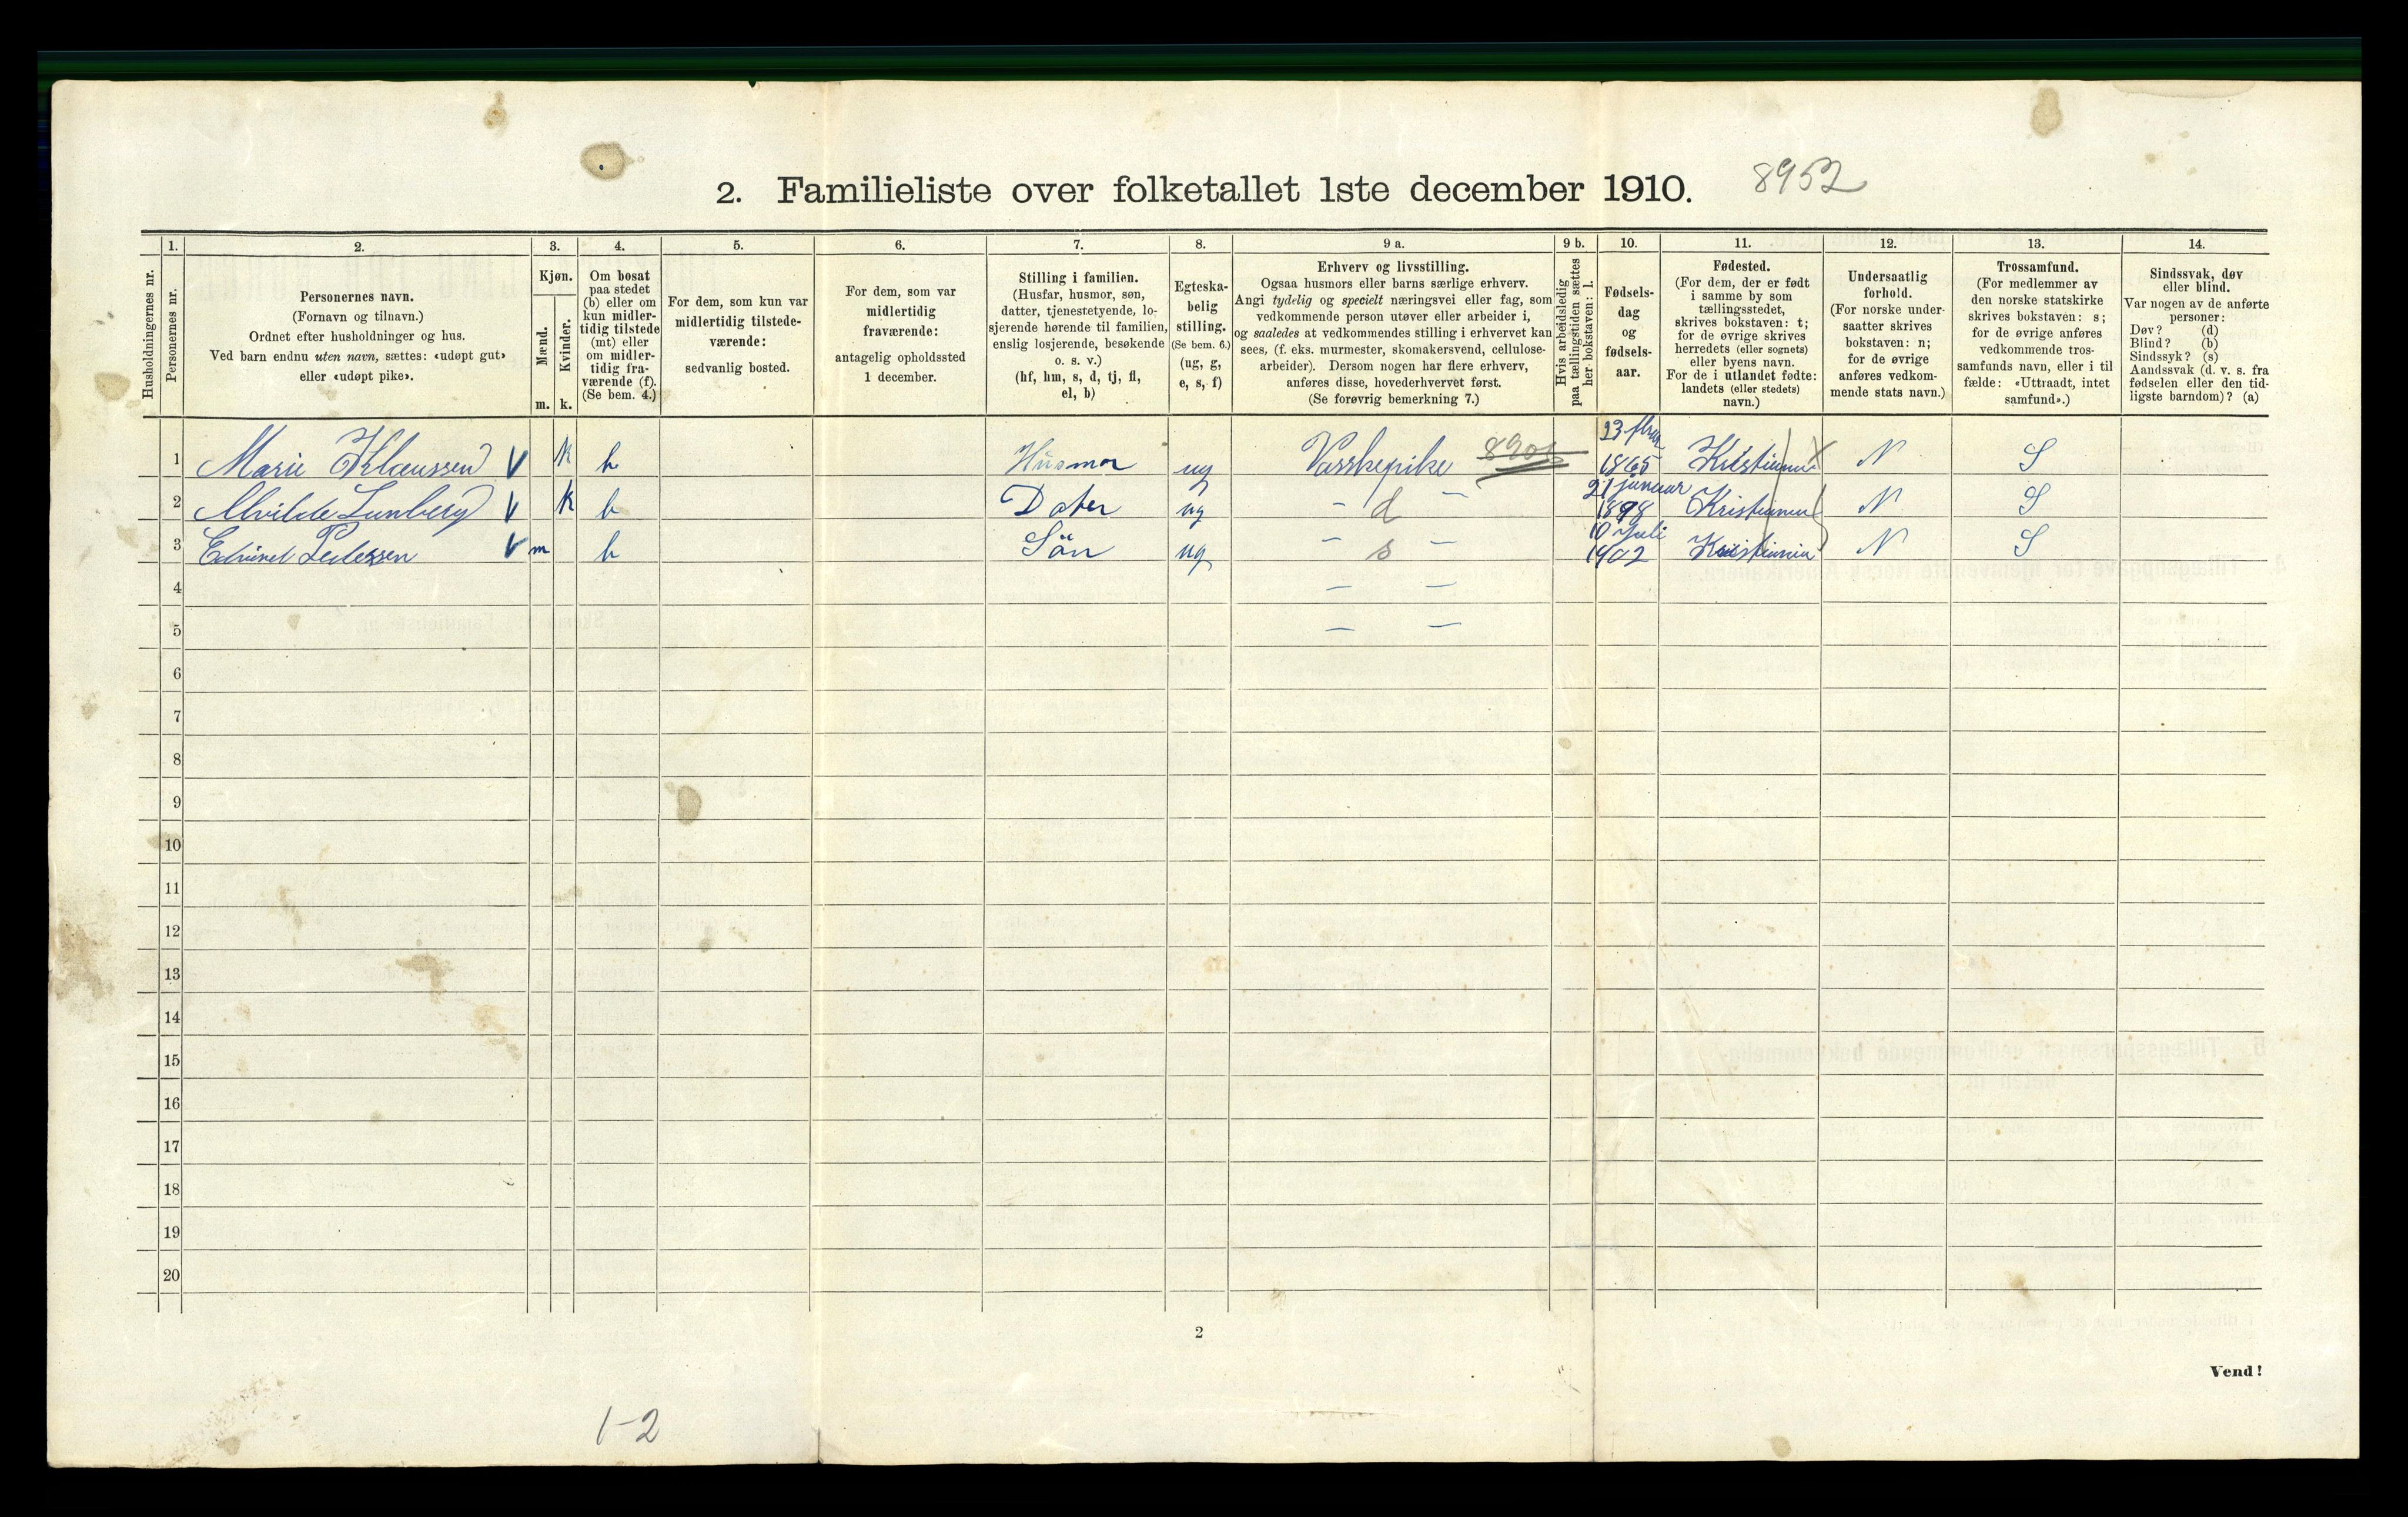 2. Familieliste over folketallet 1ste december 1910. 8952
Husholdningernes nr.
1. Personernes nr.
2.
Personernes navn.
(Fornavn og tilnavn.)
Ordnet efter husholdninger og hus.
Ved barn endnu uten navn, sættes: «udøpt gut»
eller «udøpt pike».
3.
Kjøn.
Mænd. Kvinder.
m. k.
4.
Om bosat
paa stedet
(b) eller om
kun midler-
tidig tilstede
(mt) eller
om midler-
tidig fra-
værende (f).
(Se bem. 4.)
5.
For dem, som kun var
midlertidig tilstede-
værende:
sedvanlig bosted.
6.
For dem, som var
midlertidig
fraværende:
antagelig opholdssted
1 december.
7.
Stilling i familien.
(Husfar, husmor, søn,
datter, tjenestetyende, lo-
sjerende hørende til familien,
enslig losjerende, besøkende
o. s. v.)
(hf, hm, s, d, tj, fl,
el, b)
8.
Egteska-
belig
stilling.
(Se bem. 6.)
(ug, g,
e, s, f)
9 a.
Erhverv og livsstilling.
Ogsaa husmors eller barns særlige erhverv.
Angi tydelig og specielt næringsvei eller fag, som
vedkommende person utøver eller arbeider i,
og saaledes at vedkommendes stilling i erhvervet kan
sees, (f. eks. murmester, skomakersvend, cellulose-
arbeider). Dersom nogen har flere erhverv,
anføres disse, hovederhvervet først.
(Se forøvrig bemerkning 7.)
9 b.
Hvis arbeidsledig
paa tællingstiden sættes
her bokstaven: l.
10.
Fødsels-
dag
og
fødsels-
aar.
11.
Fødested.
(For dem, der er født
i samme by som
tællingsstedet,
skrives bokstaven: t;
for de øvrige skrives
herredets (eller sognets)
eller byens navn.
For de i utlandet fødte:
landets (eller stedets)
navn.)
12.
Undersaatlig
forhold.
(For norske under-
saatter skrives
bokstaven: n;
for de øvrige
anføres vedkom-
mende stats navn.)
13.
Trossamfund.
(For medlemmer av
den norske statskirke
skrives bokstaven: s;
for de øvrige anføres
vedkommende tros-
samfunds navn, eller i til
fælde: «Uttraadt, intet
samfund».)
14.
Sindssvak, døv
eller blind.
Var nogen av de anførte
personer:
Døv? (d)
Blind? (b)
Sindssyk? (s)
Aandssvak (d. v. s. fra
fødselen eller den tid-
ligste barndom)? (a)
1 Marie Klaussen V K b Husmor ug Vasskepike 1865 Kristiania N S
2 Alvilde Lunberg V K b Dater ug - d - 21 januar 1898 Kristiania N S
3 Edvind Pedersen V m b Sön ug - s - 10 Juli 1902 Kristiania N S
4 - -
5 - -
6
7
8
9
10
11
12
13
14
15
16
17
18
19
20
2
Vend!
1-2